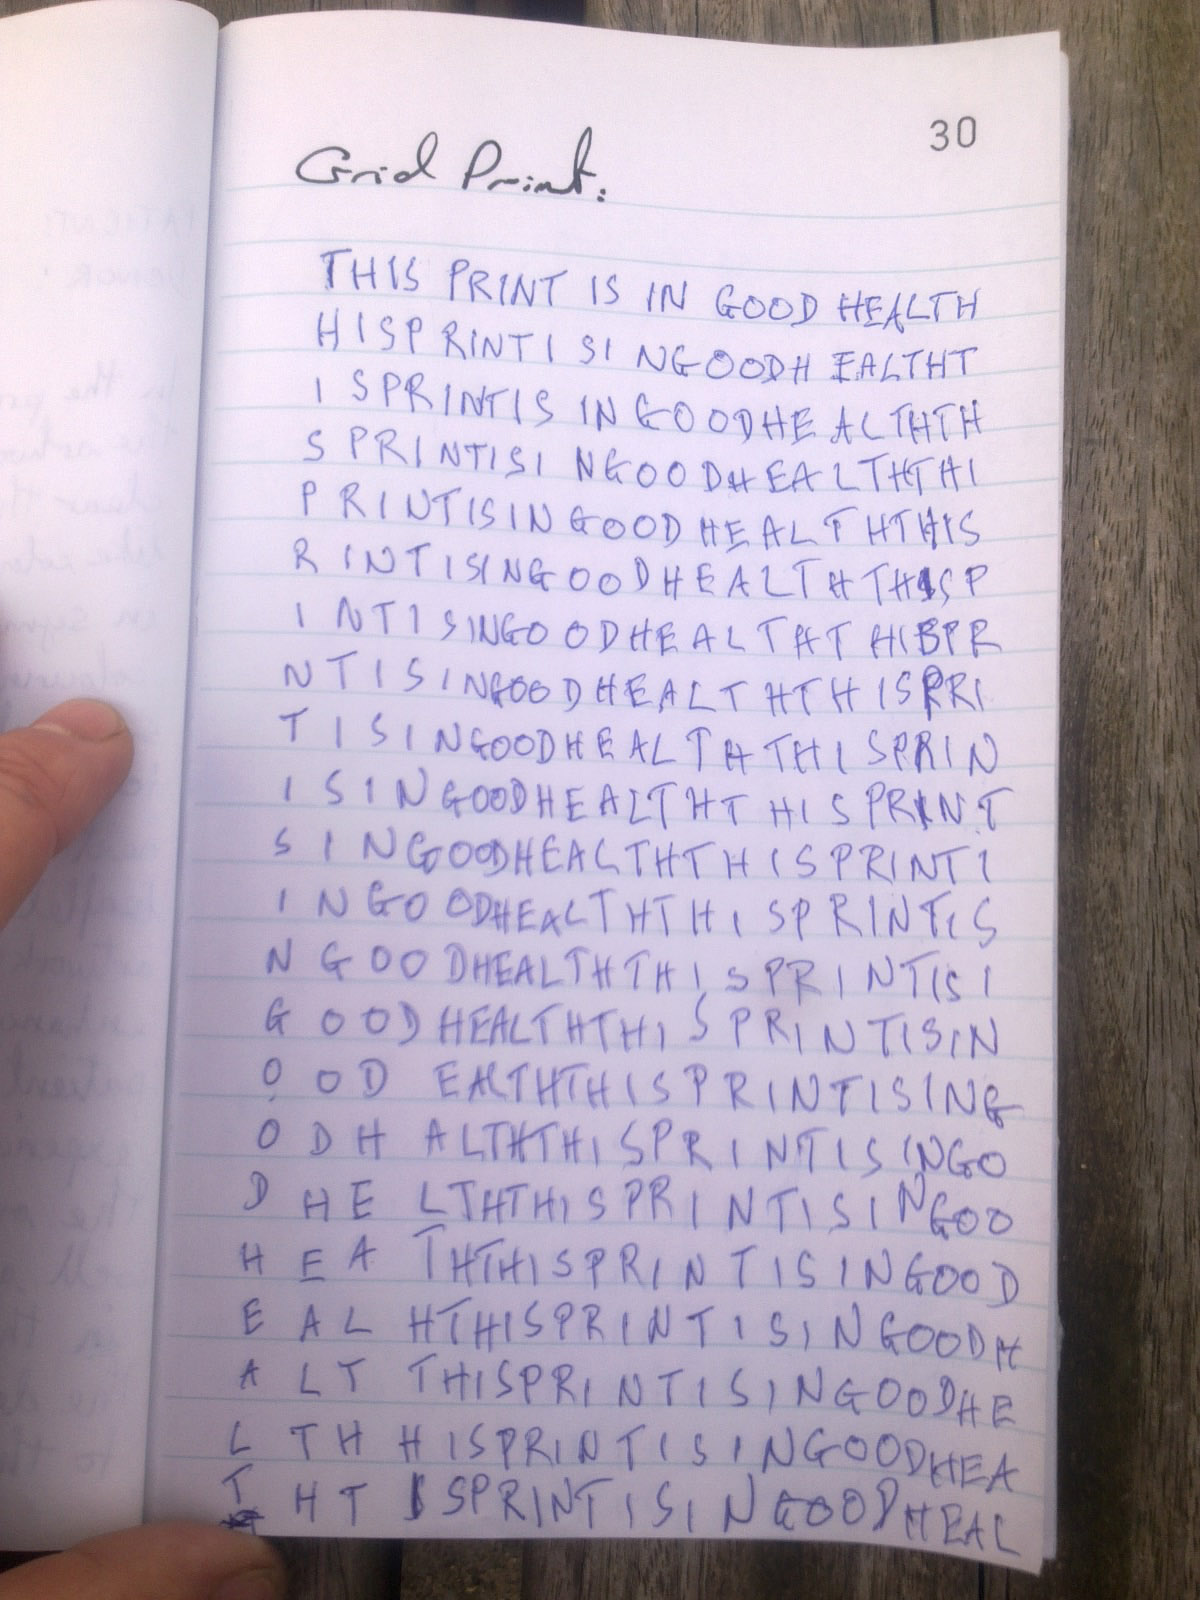 30
Grid Print:
THIS PRINT IS IN GOOD HEALTH
HISPRINTISINGOODHEALTHT
ISPRINTISINGOODHEALTHTH
SPRINTISINGOODHEALTHTHI
PRINTISINGOODHEALTHTHIS
RINTISINGOODHEALTHTHISP
INTISINGOODHEALTHTHISPR
NTISINGOODHEALTHTHISPRI
TISINGOODHEALTHTHISPRIN
ISINGOODHEALTHTHISPRINT
SINGOODHEALTHTHISPRINTI
INGOODHEALTHTHISPRINTIS
NGOODHEALTHTHISPRINTISI
GOODHEALTHTHISPRINTISIN
OOD EALTHTHISPRINTISING
ODH ALTHTHISPRINTISINGO
DHE LTHTHISPRINTISINGOO
HEA THTHISPRINTISINGOOD
EAL HTHISPRINTISINGOODH
ALT THISPRINTISINGOODHE
LTH HISPRINTISINGOODHEA
THT ISPRINTISINGOODHEAL